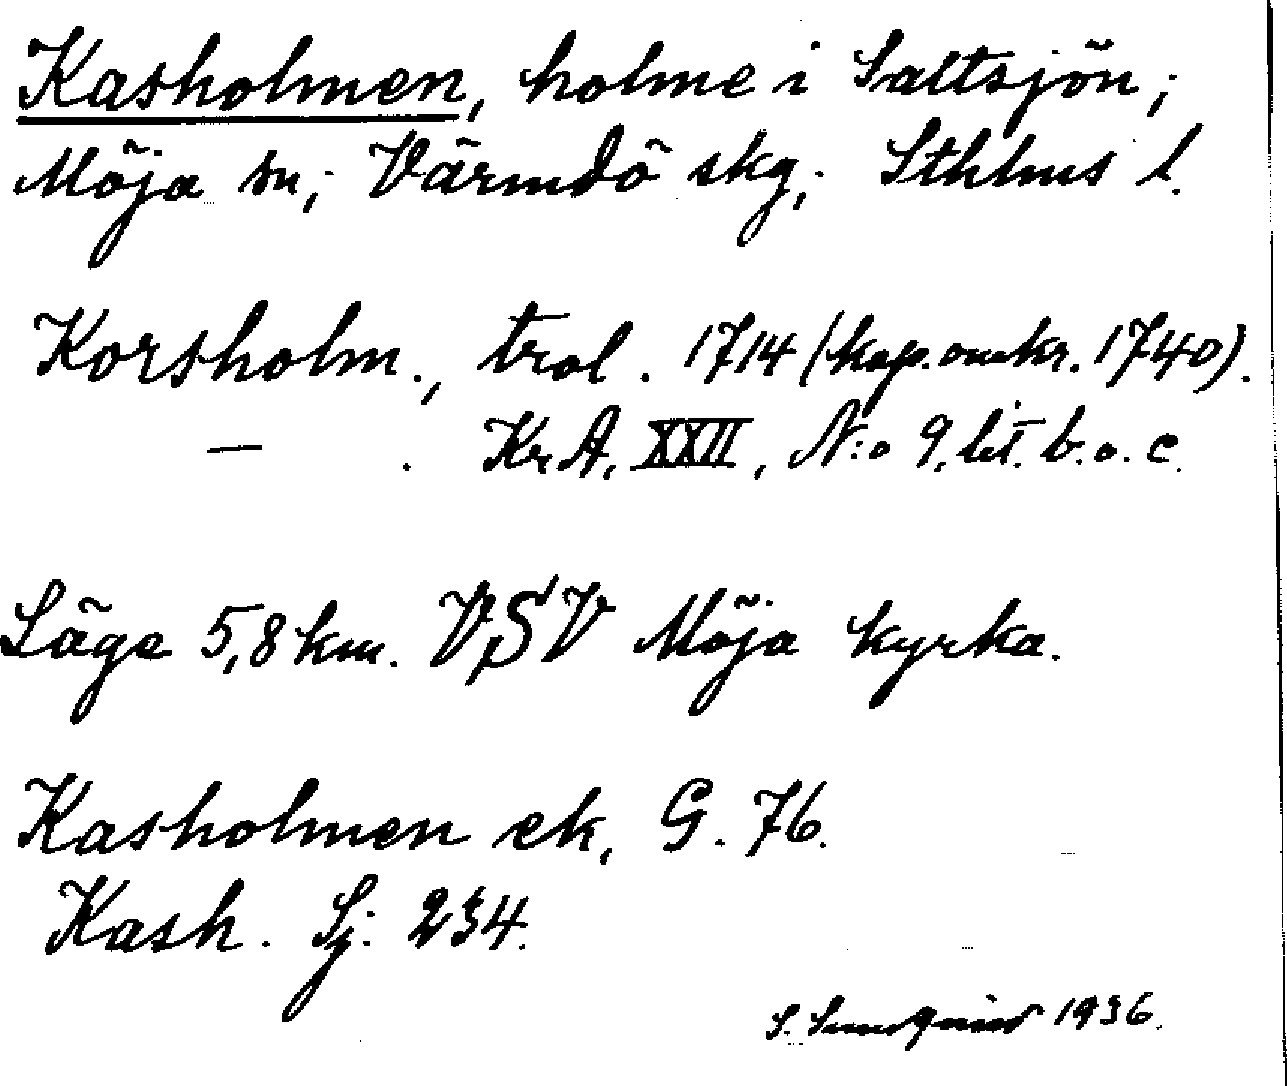 Kasholmen, holme i Saltsjön;
Möja sn; Värmdö skg; Sthlms l.
Korsholm., trol. 1714 (kop. omkr. 1740).
— . KrA, XXII, N:o 9, lit. b. o. c.
Läge 5,8 km. VSV Möja kyrka.
Kasholmen ek, G. 76.
Kash. Sj. 234.
S. Sundqvist 1936.